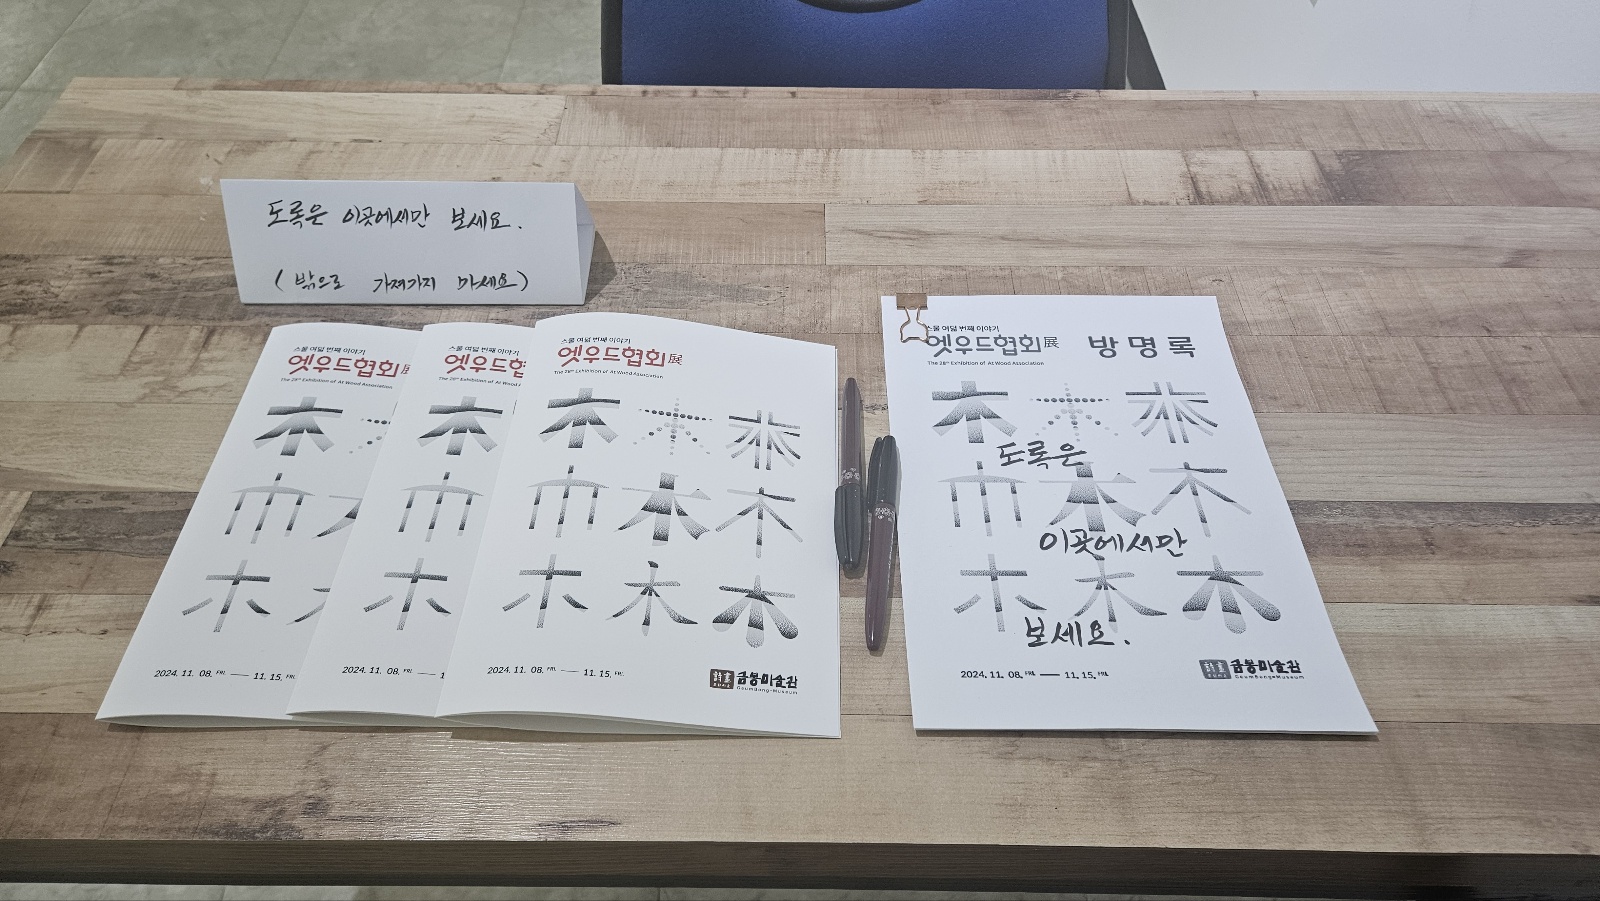 도록은 이곳에서만 보세요.
(밖으로 가져가지 마세요)
스물 여덟 번째 이야기
엣우드협회展
The 28th Exhibition of At Wood Association
2024. 11. 08. FRI.
11. 15.
스물 여덟 번째 이야기
엣우드협
The 28th Exhibition of At Wood
2024. 11. 08. FRI.
스물 여덟 번째 이야기
엣우드협회展
The 28th Exhibition of At Wood Association
木 木 木
木 木 木
木 木 木
2024. 11. 08. FRI. — 11. 15. FRI.
금봉미술관
GeumBong-Museum
스물 여덟 번째 이야기
엣우드협회展 방명록
The 28th Exhibition of At Wood Association
木 木 木
도록은
木 木 木
이곳에서만
木 木 木
보세요.
2024. 11. 08. FRI. — 11. 15. FRI.
금봉미술관
GeumBong-Museum